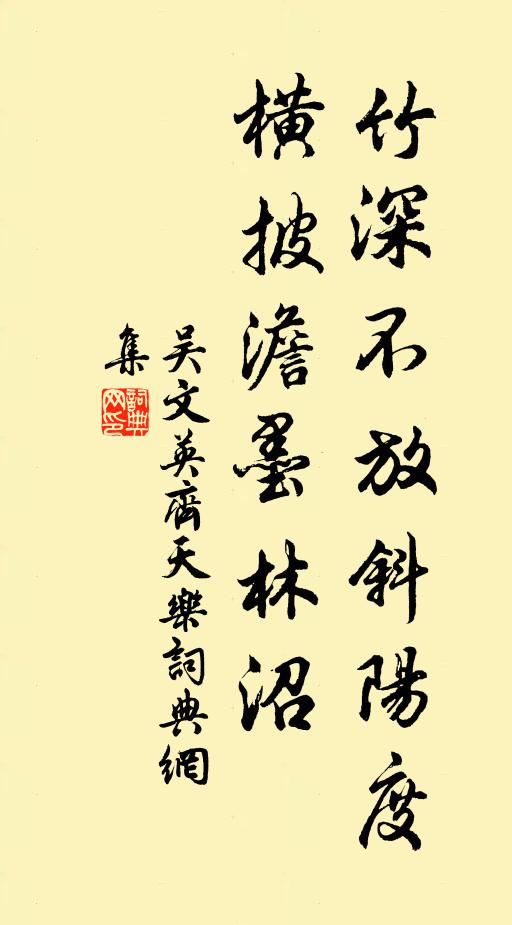 竹深不放斜陽度
橫披澹墨林沼
吴文英齊天樂詞典網
集
詞典網印